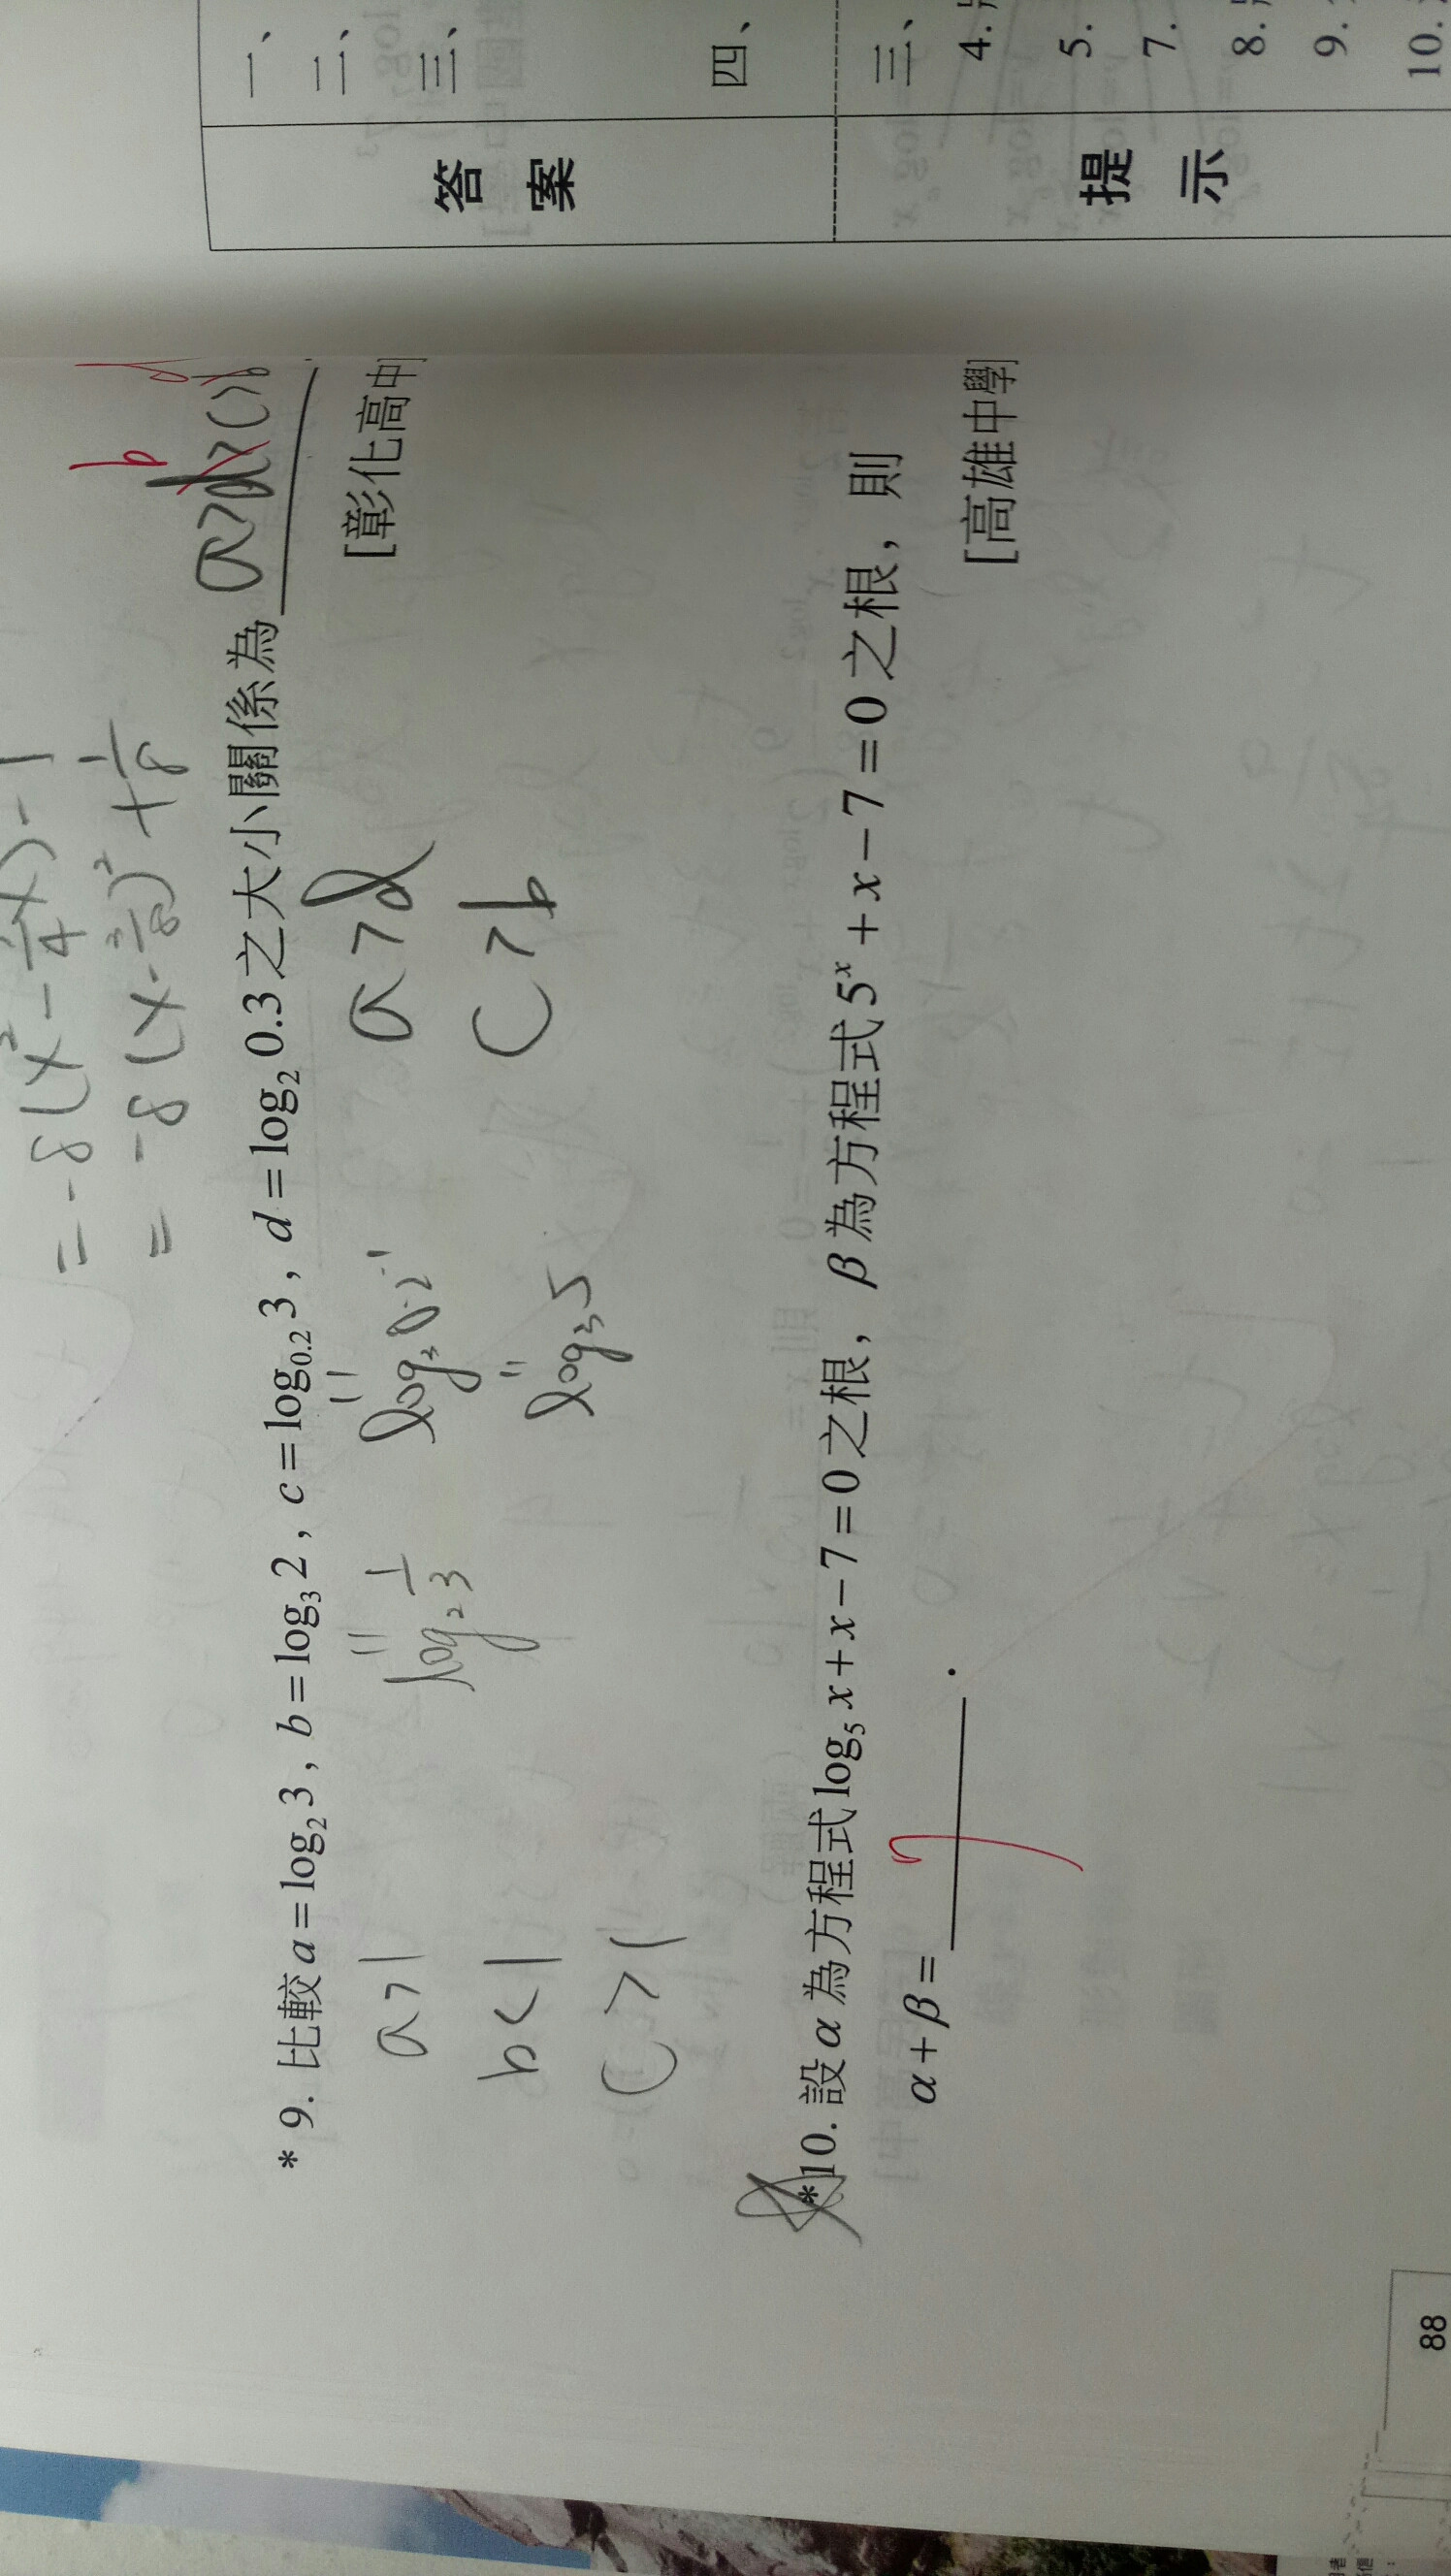 = -8(x² -
= -8(x - 3/8)² + 1/8
b
d
* 9. 比較 a = log₂ 3 , b = log₃ 2 , c = log₀.₂ 3 , d = log₂ 0.3 之大小關係為 a>
[彰化高中]
a>1
log₂ 1/3
log₃ 0.2⁻¹
a>d
b<1
log₃ 5
c>b
c>1
*10. 設 α 為方程式 log₅ x + x − 7 = 0 之根, β 為方程式 5ˣ + x − 7 = 0 之根, 則
α + β = 7 .
[高雄中學]
88
答案
一、
二、
三、
四、
提示
三、
4.
5.
7.
8.
9.
10.